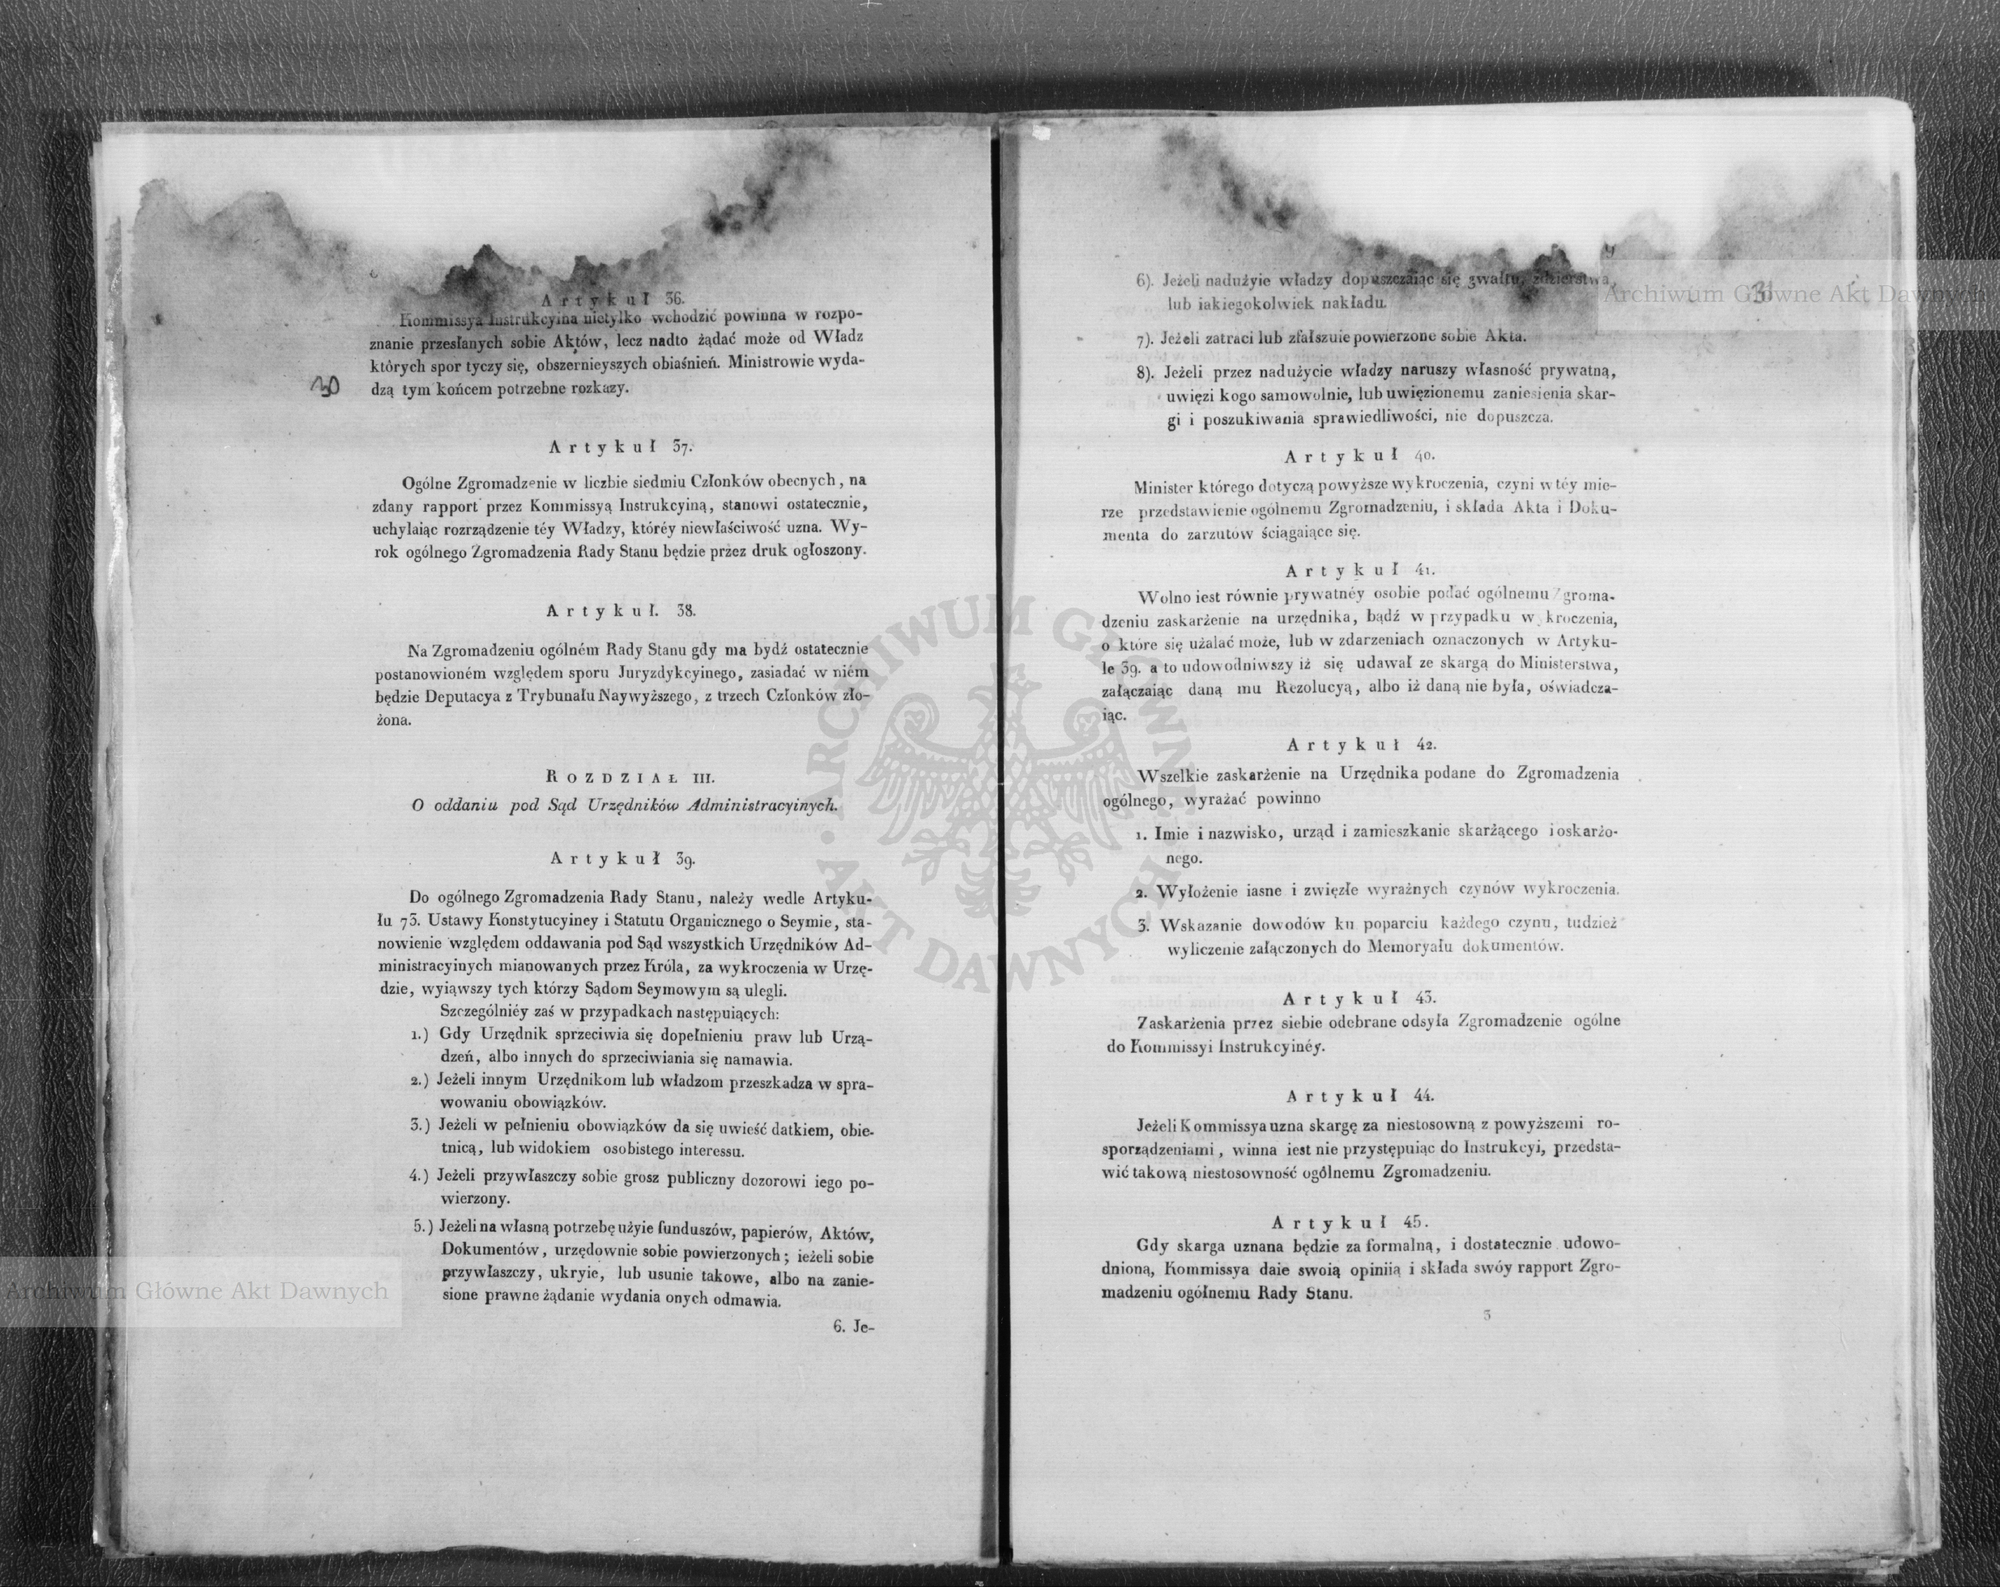 Artykuł 36.
Kommissya Instrukcyina nietylko wchodzić powinna w rozpo-
znanie przesłanych sobie Aktów, lecz nadto żądać może od Władz
których spor tyczy się, obszernieyszych obiaśnień. Ministrowie wyda-
dzą tym końcem potrzebne rozkazy.
30
Artykuł 37.
Ogólne Zgromadzenie w liczbie siedmiu Członków obecnych, na
zdany rapport przez Kommissyą Instrukcyiną, stanowi ostatecznie,
uchylaiąc rozrządzenie téy Władzy, któréy niewłaściwość uzna. Wy-
rok ogólnego Zgromadzenia Rady Stanu będzie przez druk ogłoszony.
Artykuł. 38.
Na Zgromadzeniu ogólném Rady Stanu gdy ma bydź ostatecznie
postanowioném względem sporu Juryzdykcyinego, zasiadać w niém
będzie Deputacya z Trybunału Naywyższego, z trzech Członków zło-
żona.
ROZDZIAŁ III.
O oddaniu pod Sąd Urzędników Administracyinych.
Artykuł 39.
Do ogólnego Zgromadzenia Rady Stanu, należy wedle Artyku-
łu 73. Ustawy Konstytucyiney i Statutu Organicznego o Seymie, sta-
nowienie względem oddawania pod Sąd wszystkich Urzędników Ad-
ministracyinych mianowanych przez Króla, za wykroczenia w Urzę-
dzie, wyiąwszy tych którzy Sądom Seymowym są ulegli.
Szczególniéy zaś w przypadkach następuiących:
1.) Gdy Urzędnik sprzeciwia się dopełnieniu praw lub Urzą-
dzeń, albo innych do sprzeciwiania się namawia.
2.) Jeżeli innym Urzędnikom lub władzom przeszkadza w spra-
wowaniu obowiązków.
3.) Jeżeli w pełnieniu obowiązków da się uwieść datkiem, obie-
tnicą, lub widokiem osobistego interessu.
4.) Jeżeli przywłaszczy sobie grosz publiczny dozorowi iego po-
wierzony.
5.) Jeżeli na własną potrzebę użyie funduszów, papierów, Aktów,
Dokumentów, urzędownie sobie powierzonych; ieżeli sobie
przywłaszczy, ukryie, lub usunie takowe, albo na zanie-
sione prawne żądanie wydania onych odmawia.
6. Je-
Archiwum Główne Akt Dawnych
9
31
Archiwum Główne Akt Dawnych
6). Jeżeli nadużyie władzy dopuszczaiąc się gwałtu, zdzierstwa,
lub iakiegokolwiek nakładu.
7). Jeżeli zatraci lub zfałszuie powierzone sobie Akta.
8). Jeżeli przez nadużycie władzy naruszy własność prywatną,
uwięzi kogo samowolnie, lub uwięzionemu zaniesienia skar-
gi i poszukiwania sprawiedliwości, nie dopuszcza.
Artykuł 40.
Minister którego dotyczą powyższe wykroczenia, czyni w téy mie-
rze przedstawienie ogólnemu Zgromadzeniu, i składa Akta i Doku-
menta do zarzutów ściągaiące się.
Artykuł 41.
Wolno iest równie prywatnéy osobie podać ogólnemu Zgroma-
dzeniu zaskarżenie na urzędnika, bądź w przypadku wykroczenia,
o które się użalać może, lub w zdarzeniach oznaczonych w Artyku-
le 39. a to udowodniwszy iż się udawał ze skargą do Ministerstwa,
załączaiąc daną mu Rezolucyą, albo iż daną nie była, oświadcza-
iąc.
Artykuł 42.
Wszelkie zaskarżenie na Urzędnika podane do Zgromadzenia
ogólnego, wyrażać powinno
1. Imie i nazwisko, urząd i zamieszkanie skarżącego i oskarżo-
nego.
2. Wyłożenie iasne i zwięzłe wyraźnych czynów wykroczenia.
3. Wskazanie dowodów ku poparciu każdego czynu, tudzież
wyliczenie załączonych do Memoryału dokumentów.
Artykuł 43.
Zaskarżenia przez siebie odebrane odsyła Zgromadzenie ogólne
do Kommissyi Instrukcyinéy.
Artykuł 44.
Jeżeli Kommissya uzna skargę za niestosowną z powyższemi ro-
sporządzeniami, winna iest nie przystępuiąc do Instrukcyi, przedsta-
wić takową niestosowność ogólnemu Zgromadzeniu.
Artykuł 45.
Gdy skarga uznana będzie za formalną, i dostatecznie udowo-
dnioną, Kommissya daie swoią opiniią i składa swóy rapport Zgro-
madzeniu ogólnemu Rady Stanu.
3
ARCHIWUM GŁÓWNE
AKT DAWNYCH